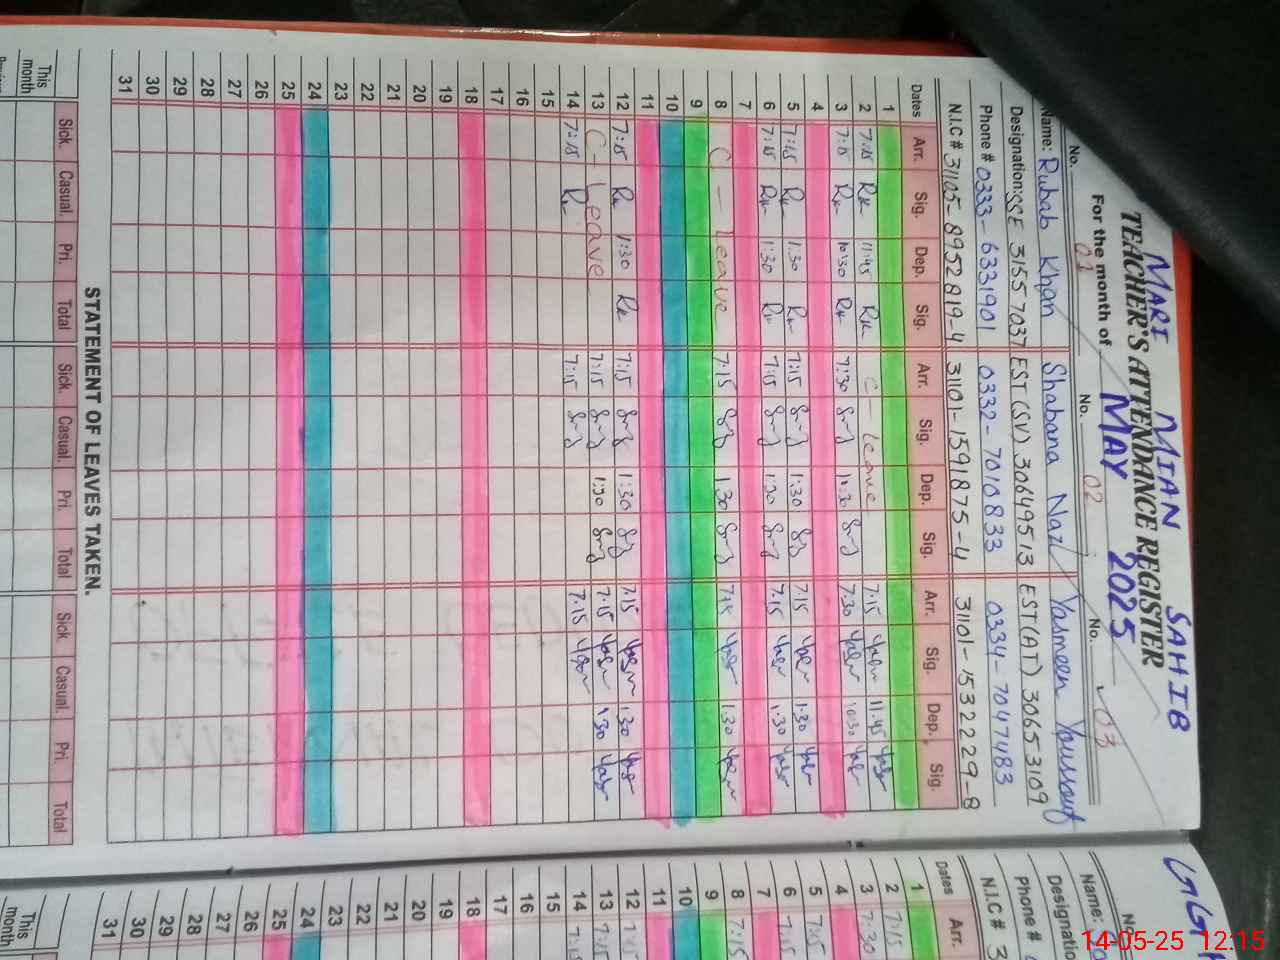 MARI MIAN SAHIB
TEACHER'S ATTENDANCE REGISTER
For the month of MAY 2025
No. 01 No. 02 No. 03
Name: Rubab Khan Shabana Naz Yasmeen Youssouf
Designation: SSE 31557037 EST (SV) 30649513 EST (AT) 30653109
Phone # 0333-6331901 0332-7010833 0334-7047483
N.I.C # 31105-8952819-4 31101-1591875-4 31101-1532229-8
Dates Arr. Sig. Dep. Sig. Arr. Sig. Dep. Sig. Arr. Sig. Dep. Sig.
1
2 7:15 11:45 C - Leave 7:15 11.45
3 7:15 10:30 7:30 10:30 7:30 10:30
4
5 7:15 1:30 7:15 1:30 7:15 1:30
6 7:15 1:30 7:15 1:30 7:15 1:30
7
8 C - Leave 7:15 1:30 7:15 1:30
9
10
11
12 7:15 1:30 7:15 1:30 7:15 1:30
13 C - Leave 7:15 1:30 7:15 1:30
14 7:15 7:15 7:15
15
16
17
18
19
20
21
22
23
24
25
26
27
28
29
30
31
STATEMENT OF LEAVES TAKEN.
Sick. Casual. Pri. Total Sick. Casual. Pri. Total Sick Casual. Pri Total
This month
Name:
Phone #
N.I.C # 3
Dates Arr.
1
2 7:15
3 7:30
4
5 7:15
6 7:15
7
8 7:15
9
10
11
12 7:15
13 7:15
14 7:15
15
16
17
18
19
20
21
22
23
24
25
26
27
28
29
30
31
This month
14-05-25 12:15